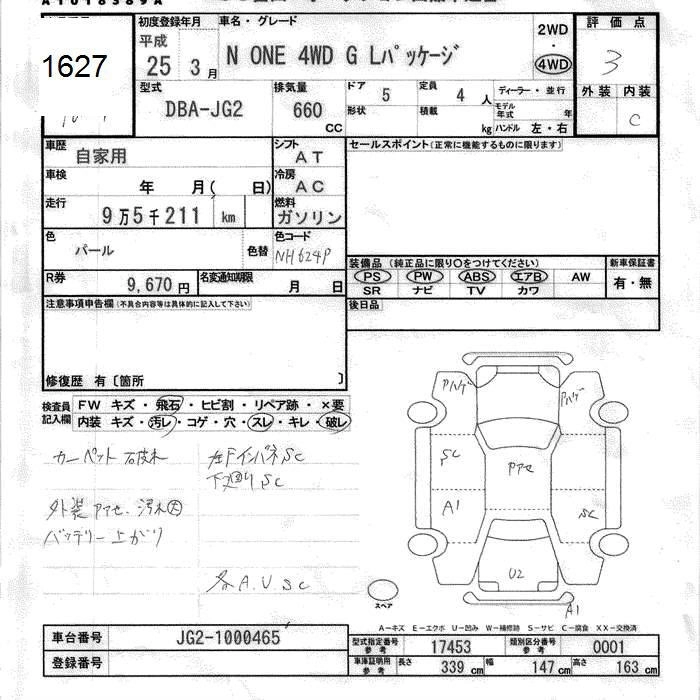 1627
初度登録年月 車名・グレード
平成
25 3月 N ONE 4WD G Lパッケージ
2WD
4WD
評価点
3
外装 内装
C
型式 排気量 ドア 定員 ディーラー・並行
DBA-JG2 660 CC 5 4人
形状 積載 kg モデル年式 年
ハンドル 左・右
車歴 シフト セールスポイント(正常に機能するものに限ります)
自家用 AT
車検 冷房
年 月( 日) AC
走行 燃料
9万5千211 km ガソリン
色 色替 色コード
パール NH624P
装備品 (純正品に限り○をつけてください) 新車保証書
PS PW ABS エアB AW 有・無
SR ナビ TV カワ
R券 名変通知期限
9,670円 月 日
後日品
注意事項申告欄(不具合内容等は具体的に記入して下さい)
修復歴 有〔箇所 〕
検査員記入欄
FW キズ・飛石・ヒビ割・リペア跡・×要
内装 キズ・汚レ・コゲ・穴・スレ・キレ・破レ
カーペット破れ
左FインパネSC
下廻りSC
外装アセ.汚れ大
バッテリー上がり
各A.U.SC
アハゲ アハゲ
SC アセ
A1 SC
U2
A1
スペア
A-キズ E-エクボ U-凹み W-補修跡 S-サビ C-腐食 XX-交換済
車台番号 JG2-1000465
登録番号
型式指定番号 参考 17453 類別区分番号 参考 0001
車庫証明用 参考 長さ 339 cm 幅 147 cm 高さ 163 cm